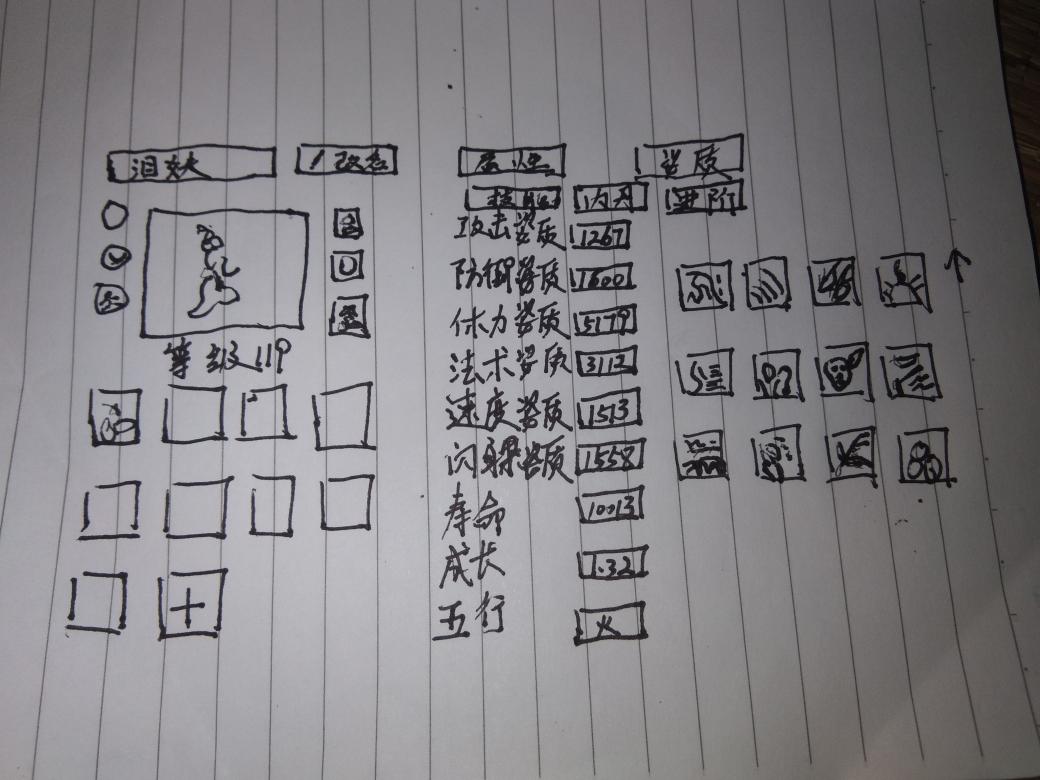 泪妖 改名 属性 资质
技能 内丹 进阶
攻击资质 1267
防御资质 1600
体力资质 5179
法术资质 3112
速度资质 1513
闪躲资质 1558
寿命 10013
成长 1.32
五行 火
等级 119